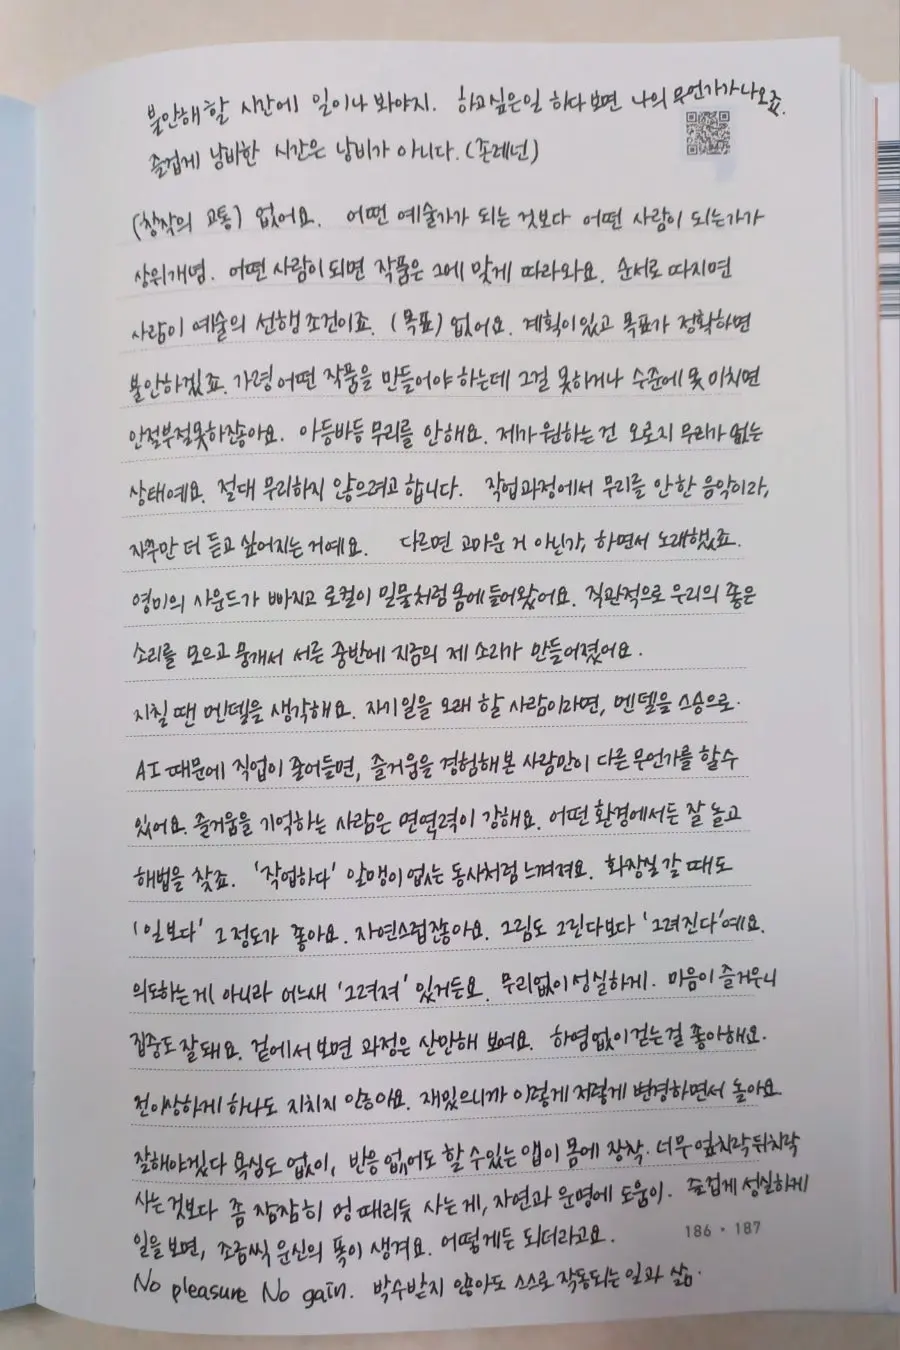 불안해 할 시간에 일이나 봐야지. 하고싶은일 하다보면 나의 무언가가 나오죠.
즐겁게 낭비한 시간은 낭비가 아니다. (존레넌)
(창작의 고통) 없어요. 어떤 예술가가 되는 것보다 어떤 사람이 되는가가
상위개념. 어떤 사람이 되면 작품은 그에 맞게 따라와요. 순서로 따지면
사람이 예술의 선행조건이죠. (목표) 없어요. 계획이 있고 목표가 정확하면
불안하겠죠. 가령 어떤 작품을 만들어야 하는데 그걸 못하거나 수준에 못 미치면
안절부절못하잖아요. 아등바등 무리를 안해요. 제가 원하는 건 오로지 무리가 없는
상태예요. 절대 무리하지 않으려고 합니다. 작업과정에서 무리를 안한 음악이라,
자꾸만 더 듣고 싶어지는 거예요. 다르면 고마운 거 아닌가, 하면서 노래했죠.
영미의 사운드가 빠지고 로컬이 밀물처럼 몸에 들어왔어요. 직관적으로 우리의 좋은
소리를 모으고 뭉개서 서른 중반에 지금의 제 소리가 만들어졌어요.
지칠 땐 멘델을 생각해요. 자기일을 오래 할 사람이라면, 멘델을 스승으로.
AI 때문에 직업이 줄어들면, 즐거움을 경험해본 사람만이 다른 무언가를 할수
있어요. 즐거움을 기억하는 사람은 면역력이 강해요. 어떤 환경에서든 잘 놀고
해법을 찾죠. '작업하다' 알맹이 없는 동사처럼 느껴져요. 화장실 갈 때도
'일보다' 그 정도가 좋아요. 자연스럽잖아요. 그림도 그린다보다 '그려진다'예요.
의도하는게 아니라 어느새 '그려져' 있거든요. 무리없이 성실하게. 마음이 즐거우니
집중도 잘돼요. 겉에서 보면 과정은 산만해 보여요. 하염없이 걷는걸 좋아해요.
전 이상하게 하나도 지치지 않아요. 재밌으니까 이렇게 저렇게 변경하면서 놀아요.
잘해야겠다 욕심도 없이, 반응 없어도 할 수 있는 앱이 몸에 장착. 너무 엎치락뒤치락
사는 것보다 좀 잠잠히 멍 때리듯 사는 게, 자연과 운명에 도움이. 즐겁게 성실하게
일을 보면, 조금씩 운신의 폭이 생겨요. 어떻게든 되더라고요.
186 · 187
No pleasure No gain. 박수받지 않아도 스스로 작동되는 일과 삶.